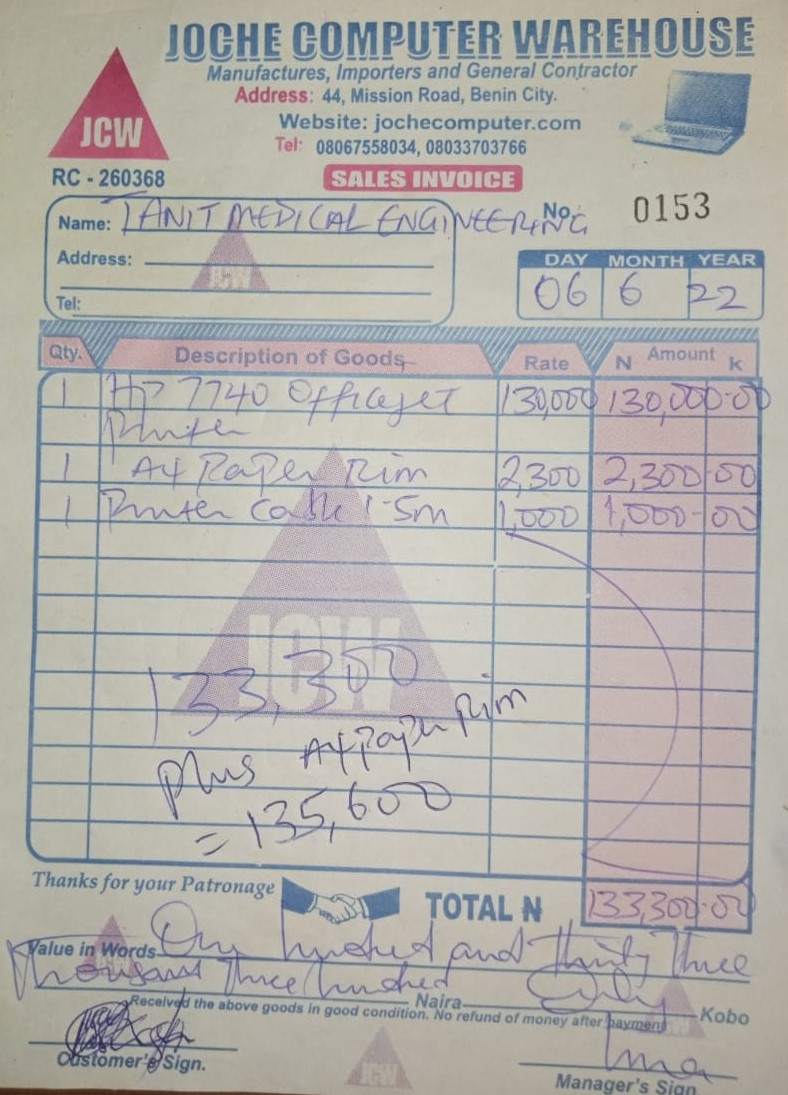 JOCHE COMPUTER WAREHOUSE
Manufactures, Importers and General Contractor
Address: 44, Mission Road, Benin City.
Website: jochecomputer.com
Tel: 08067558034, 08033703766
JCW
RC - 260368
SALES INVOICE
Name: TANIT MEDICAL ENGINEERING
No. 0153
Address:
Tel:
DAY MONTH YEAR
06 6 22
Qty. Description of Goods Rate N Amount k
1 Hp 7740 Officejet 130,000 130,000.00
Printer
1 A4 Paper Rim 2,300 2,300.00
1 Printer Cable 1.5m 1,000 1,000-00
JCW
133,300
plus A4 Paper Rim
= 135,600
Thanks for your Patronage
TOTAL N 133,300.00
Value in Words One hundred and Thirty Three
Thousand Three hundred Naira Only Kobo
Received the above goods in good condition. No refund of money after payment
Customer's Sign.
Manager's Sign
JCW